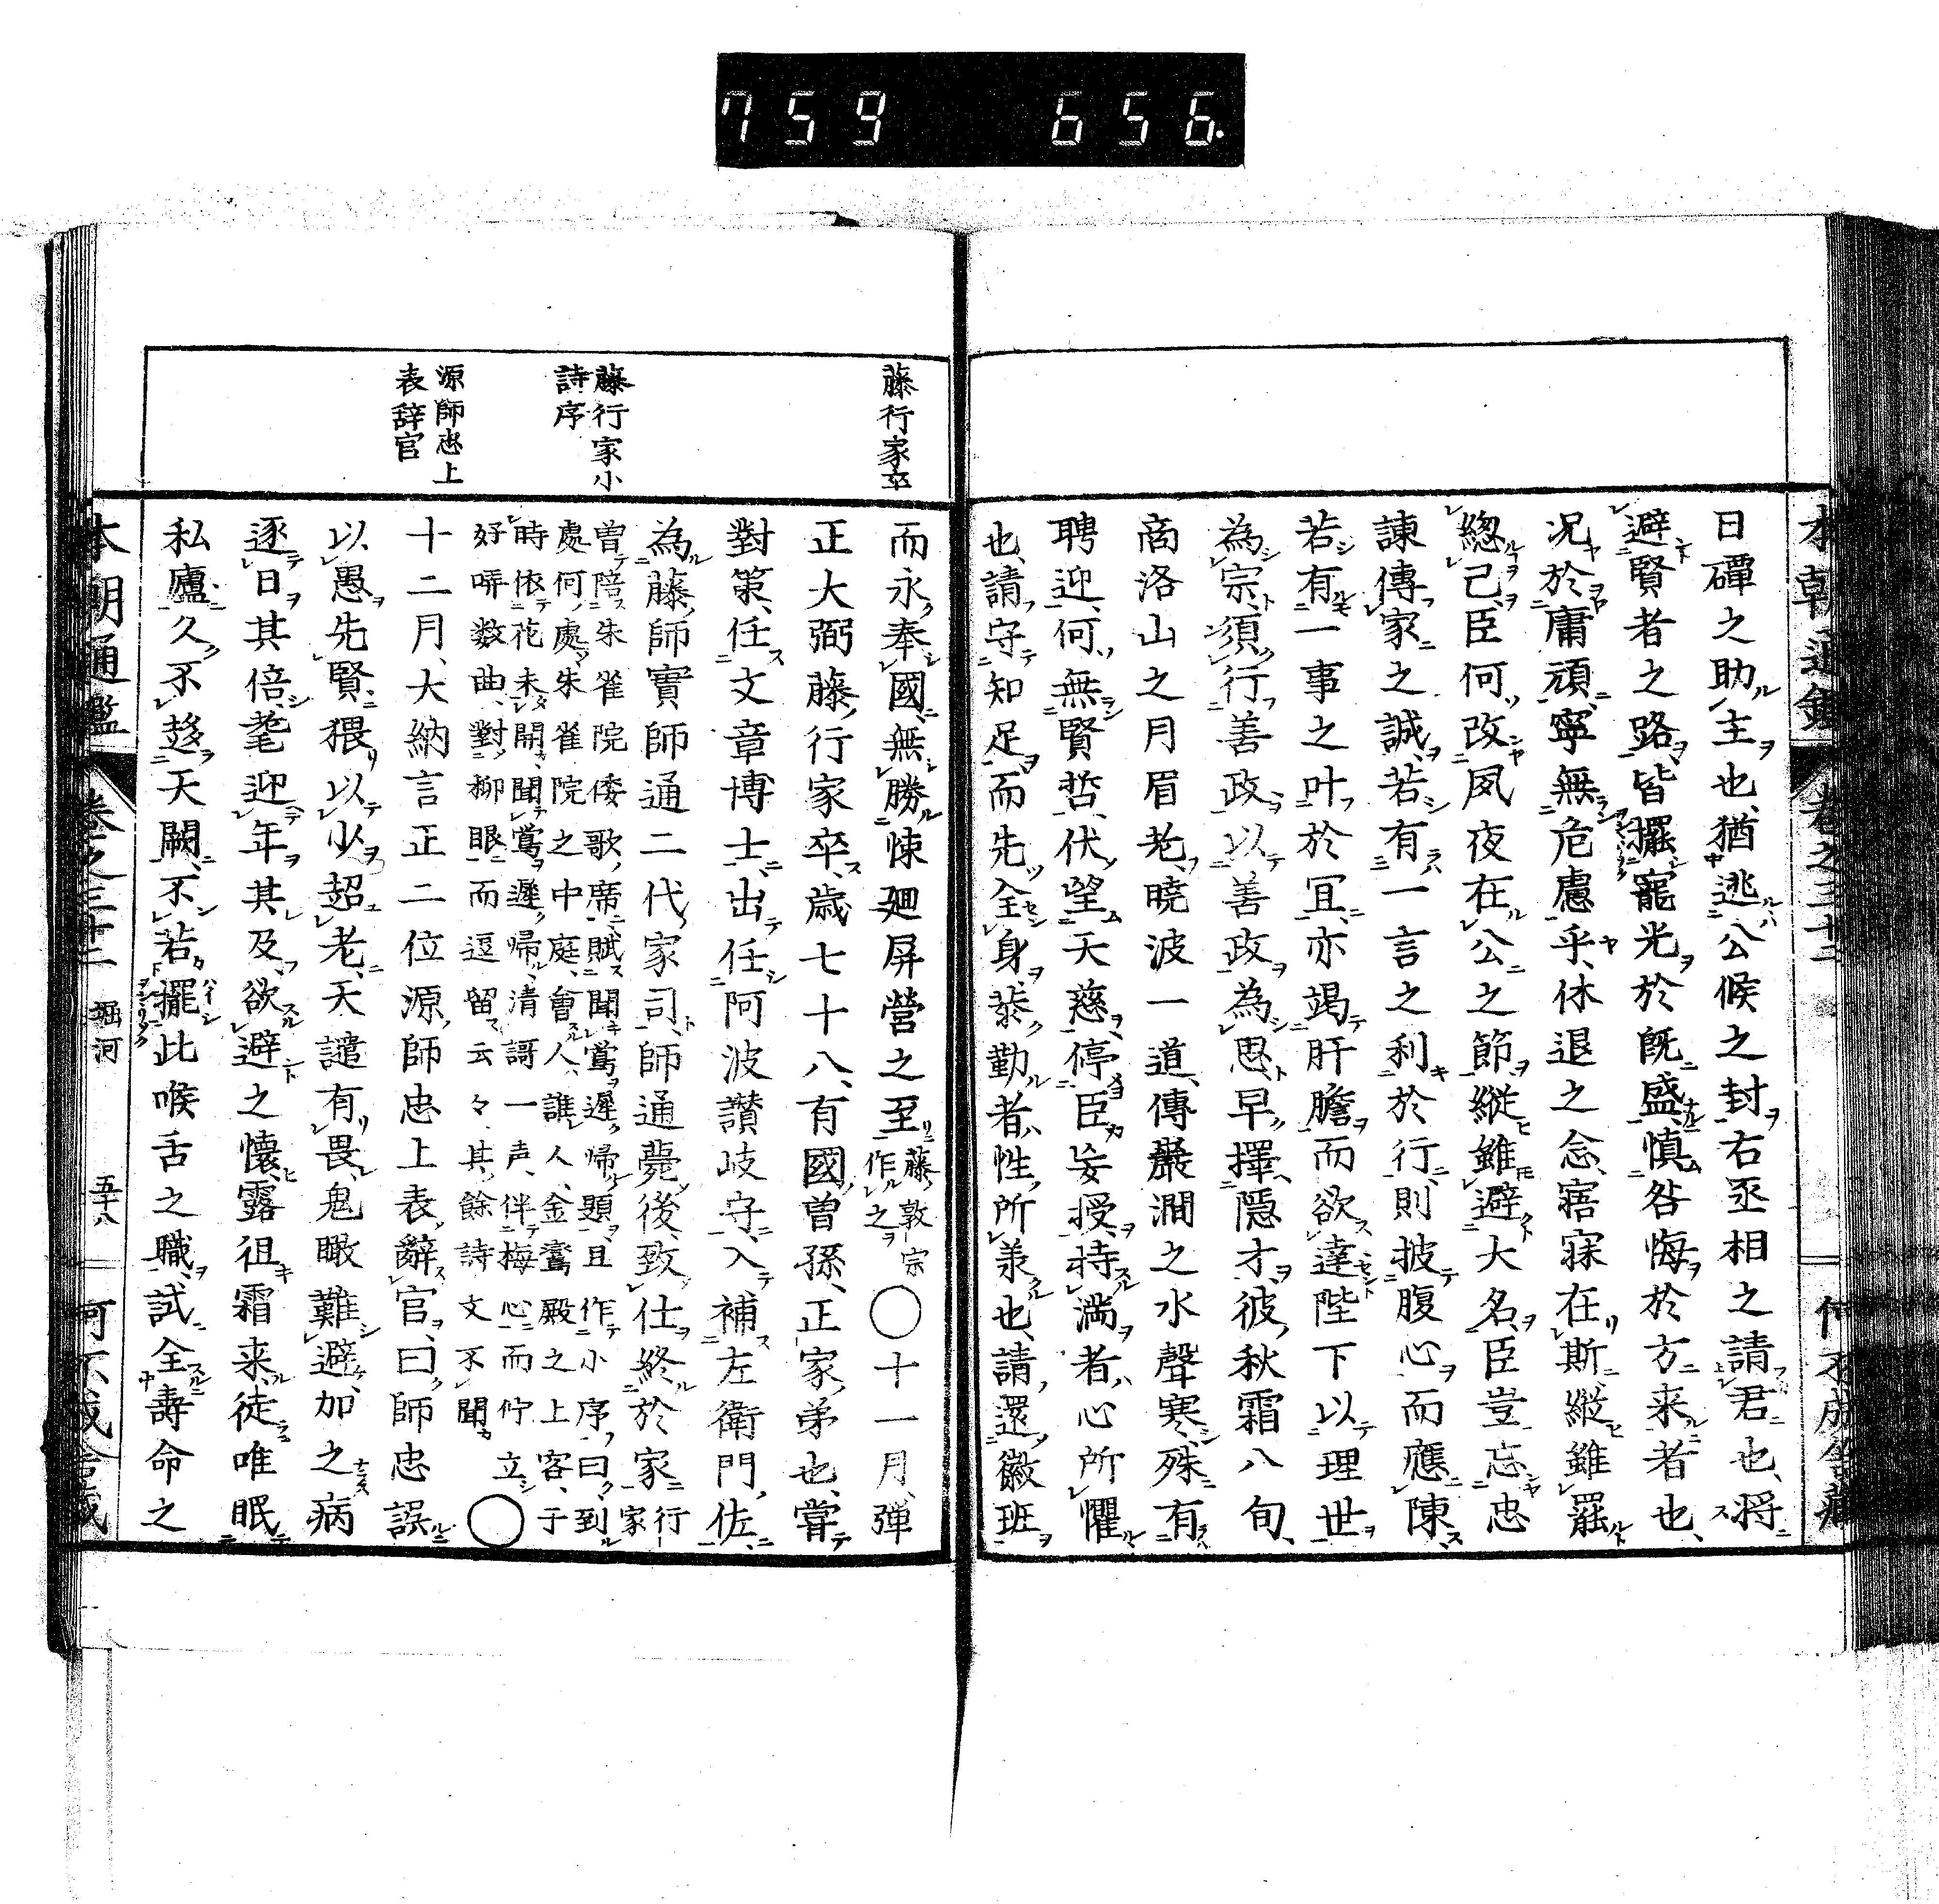 759 656.
本朝通鑑 卷之三十二
日磾之助主也、猶逃公候之封右丞相之請君也、将
避賢者之路皆擺寵光於既盛、慎咎悔於方来者也、
况於庸頑、寧無危慮乎、休退之念、寤寐在斯、縦雖罷
緫己、臣何改夙夜在公之節、縦雖避大名、臣豈忘忠
諌傳家之誠、若有一言之利於行、則披腹心而應陳、
若有一事之叶於宜、亦竭肝膽而欲達陛下以理世
為宗、須行善政以善政為思、早擇隠才、彼秋霜八旬、
商洛山之月眉老、曉波一道、傳巖澗之水聲寒、殊有
聘迎、何無賢哲、伏望天慈、停臣妄授、持満者、心所懼
也、請守知足、而先全身、恭勤者、性所羨也、請還徽班
藤行家卒
而永奉國、無勝悚廻屏營之至
藤敦宗
作之
〇十一月、弾
正大弼藤行家卒、歳七十八、有國曽孫、正家弟也、嘗
對策、任文章博士、出任阿波讃岐守、入補左衛門佐、
為藤師實師通二代家司、師通薨後、致仕終於家
行
家
藤行家小
詩序
曽陪朱雀院倭歌席、賦聞鶯遲帰題、且作小序、曰、到
處何處朱雀院之中庭、會人誰人、金鸞殿之上客、于
時依花未開、聞鶯遲帰、清謌一声、伴梅心而佇立
好哢数曲、對柳眼而逗留云々、其餘詩文不聞
〇
源師忠上
表辞官
十二月、大納言正二位源師忠上表、辭官、曰、師忠誤
以愚先賢、猥以少超老、天譴有畏、鬼瞰難避、加之病
逐日其倍、耄迎年其及、欲避之懷、露徂霜来、徒唯眠
私廬、久不趍天闕、不若擺此喉舌之職、試全壽命之
本朝通鑑 卷之三十二 堀河 五十八